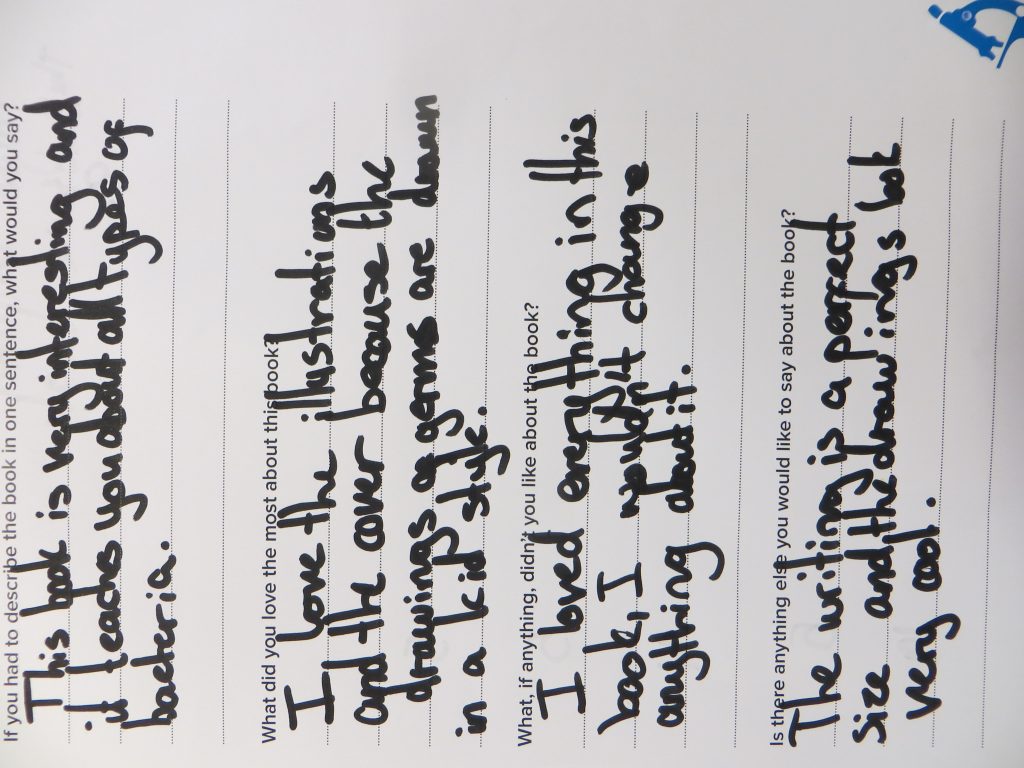 If you had to describe the book in one sentence, what would you say?
This book is very interesting and
it teaches you about all types of
bacteria.
What did you love the most about this book?
I love the illustrations
and the cover because the
drawings of germs are drawn
in a kid style.
What, if anything, didn't you like about the book?
I loved everything in this
book, I wouldn't change
anything about it.
Is there anything else you would like to say about the book?
The writing is a perfect
size and the drawings look
very cool.